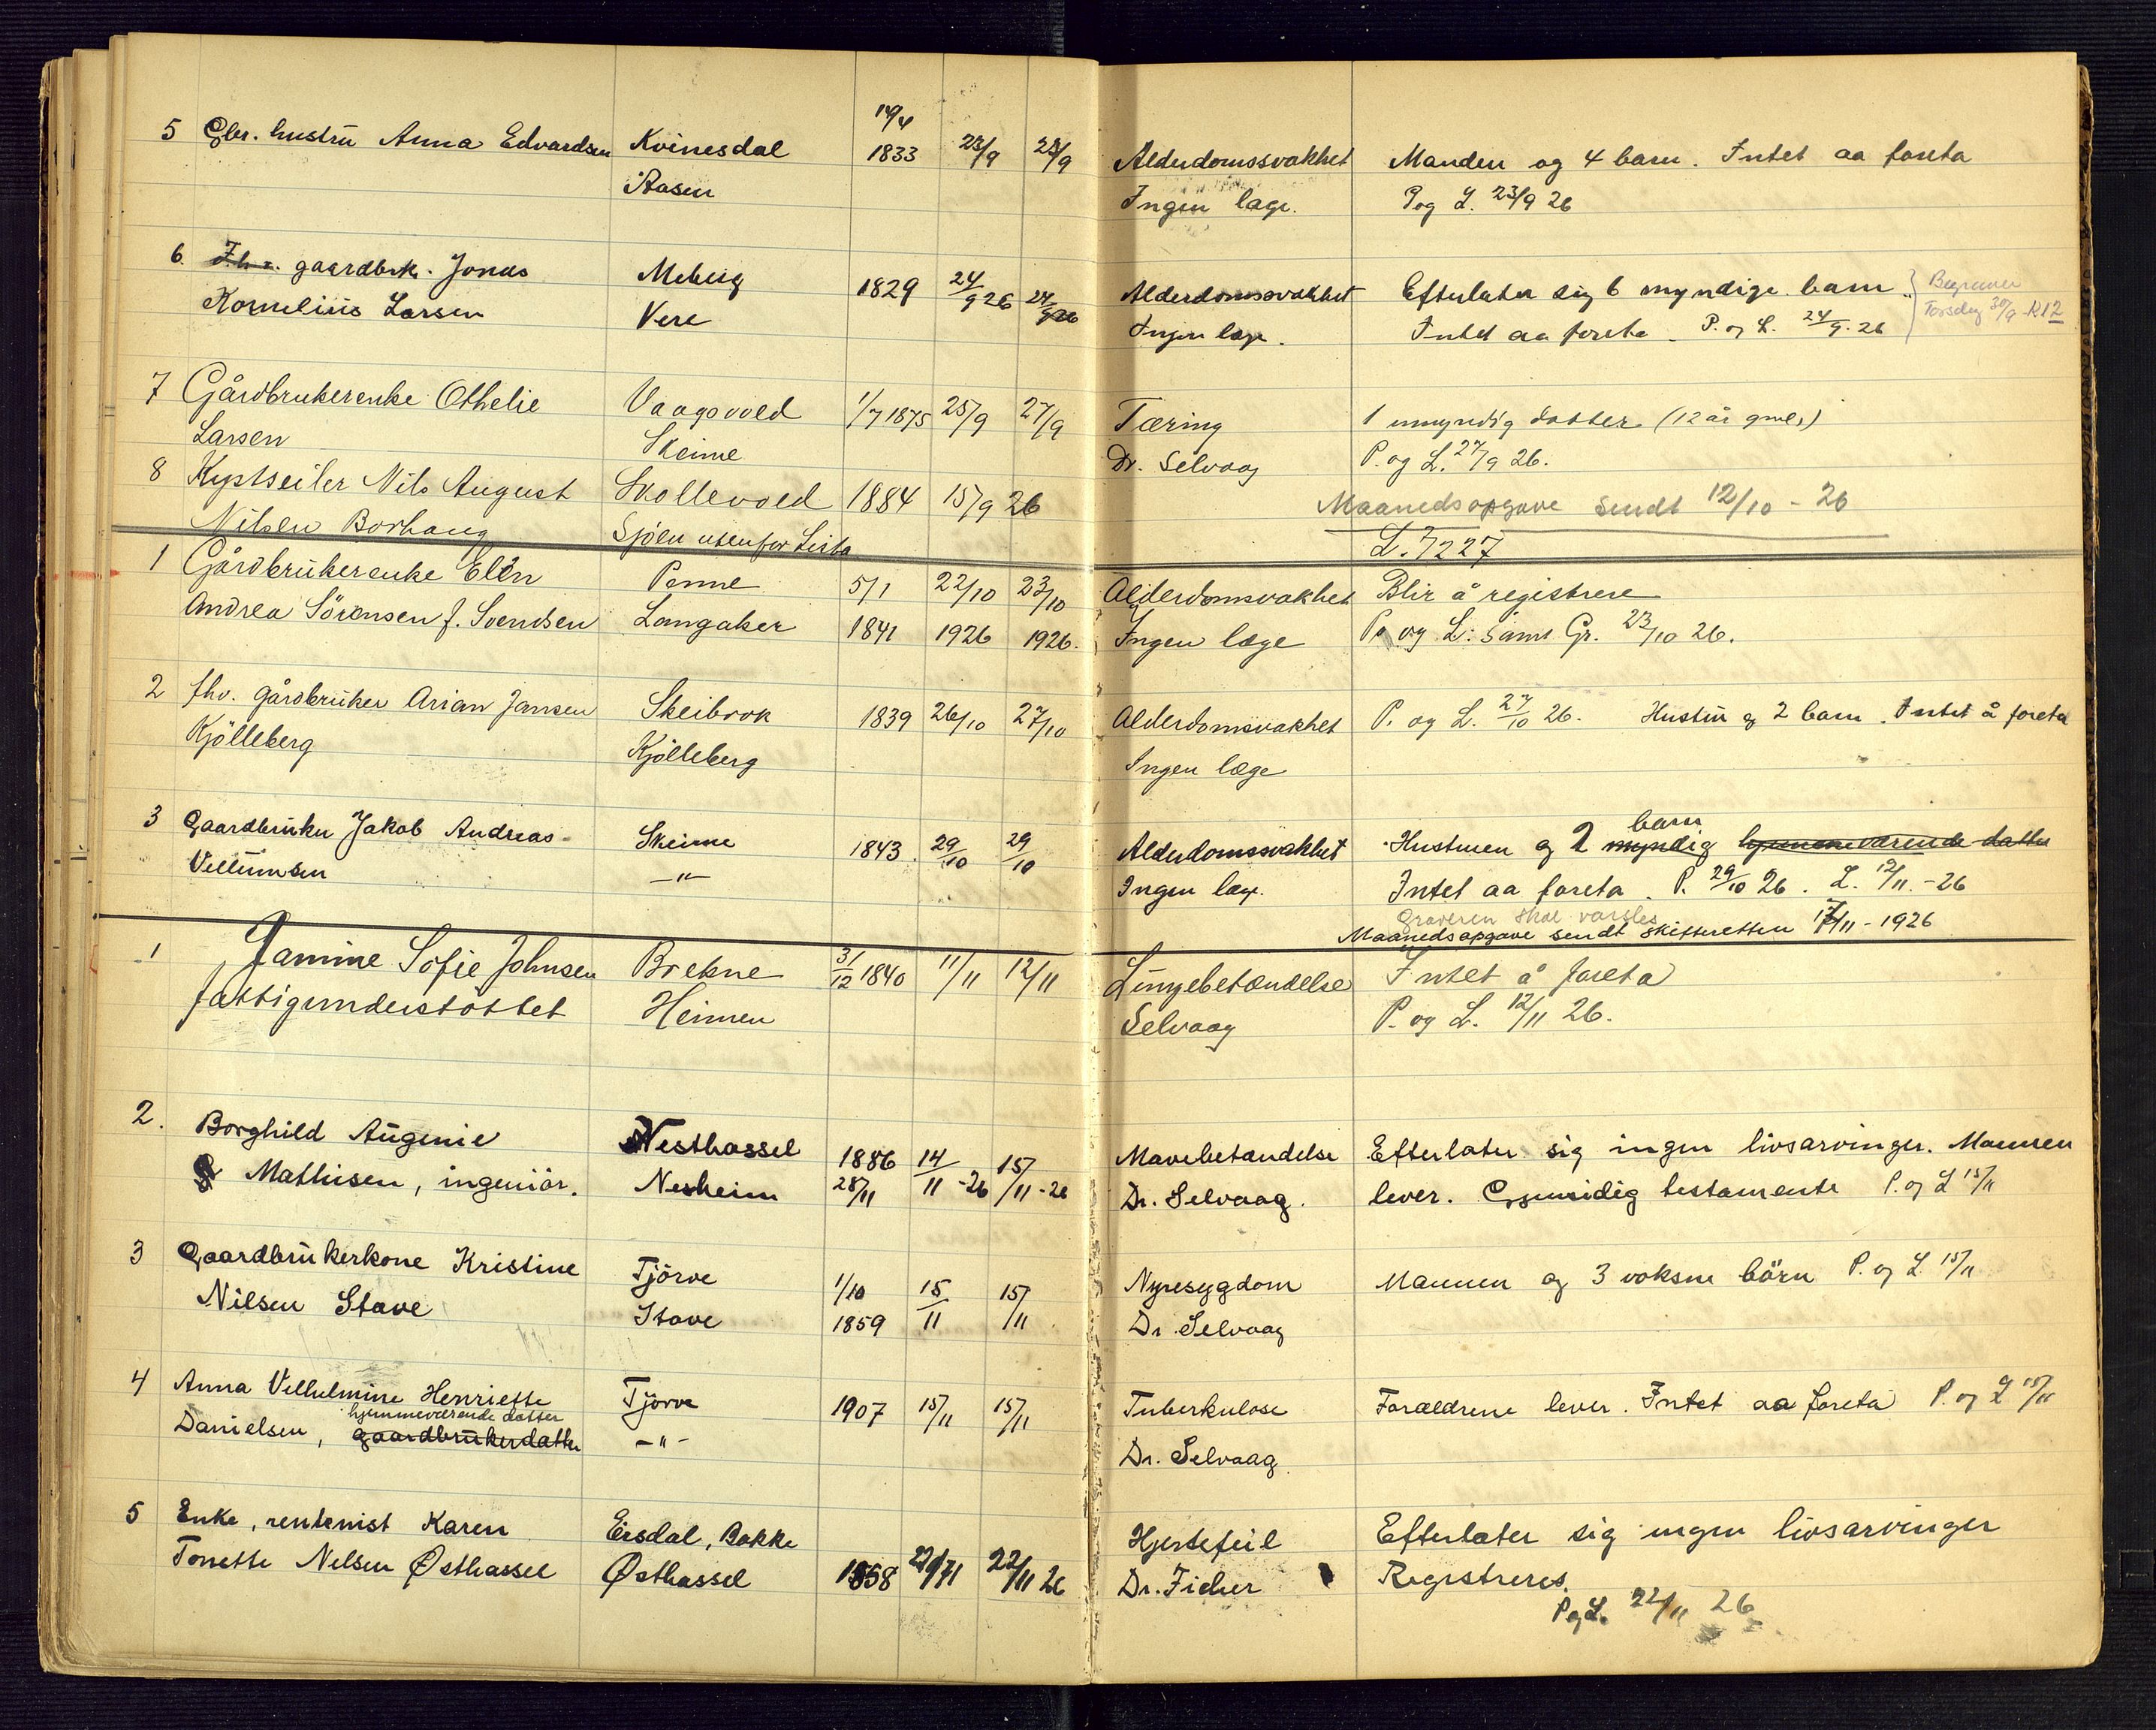 5 Gbr. hustru Anna Edvardsen Kvinesdal 14/4 1833 23/9 23/9 Alderdomssvakhet Manden og 4 barn. Intet aa foreta
Aasen Ingen læge. P og L. 23/9 26
6. F.h.v. gaardbrk. Jonas Meberg 1829 24/9 26 24/9 26 Alderdomssvakhet Efterlater sig 6 myndige barn. Begraves
Kornelius Larsen Vere Ingen læge. Intet aa foreta. P. og L. 24/9. 26 Torsdag 30/9 - kl 12
7 Gårdbrukerenke Othelie Vaagsvold 1/7 1875 25/9 27/9 Tæring 1 umyndig datter (12 år gml.)
Larsen Skeime Dr. Selvaag P. og L. 27/9 26.
8 Kystseiler Nils August Skollevold 1884 15/9 26 Maanedsopgave sendt 12/10 - 26
Nilsen Borhaug Sjöen utenfor Lista L. 7227
1 Gårdbrukerenke Elen Penne 5/1 22/10 23/10 Alderdomsvakhet Blir å registrere
Andrea Sörensen f. Svendsen Langaker 1841 1926 1926. Ingen læge P. og L. samt Gr. 23/10 26.
2 fhv. gårdbruker Arian Jansen Skeibrok 1839 26/10 27/10 Alderdomsvakhet P. og L. 27/10 26. Hustru og 2 barn. Intet å foreta
Kjölleberg Kjölleberg Ingen læge
3 Gaardbruker Jakob Andreas Skeime 1843 29/10 29/10 Alderdomssvakhet Hustruen og 2 barn myndig hjemmeværende datter
Vellumsen -"- Ingen læge. Intet aa foreta. P. 29/10 26. L. 12/11. - 26
Graveren skal varsles
Maanedsopgave sendt skifteretten 17/11 - 1926
1 Jamine Sofie Johnsen Brekne 31/12 1840 11/11 12/11 Lungebetændelse Intet å foreta
fattigunderstöttet Heimen Selvaag P. og L. 12/11 26.
2. Borghild Augenie Vesthassel 1886 14/11 - 26 15/11 - 26 Mavebetændelse Efterlater sig ingen livsarvinger. Mannen
Mathisen, ingeniör. Nesheim 28/11 Dr. Selvaag. lever. Gjensidig testamente P. og L 15/11
3 Gaardbrukerkone Kristine Tjörve 1/10 15/11 15/11 Nyresygdom Mannen og 3 voksne börn P. og L 15/11
Nilsen Stave Stave 1859 Dr. Selvaag
4 Anna Velhelmine Henriette Tjörve 1907 15/11 15/11 Tuberkulose Forældrene lever. Intet aa foreta P. og L 15/11
hjemmeværende datter
Danielsen, gaardbrukerdatter -"- Dr. Selvaag
5 Enke, rentenist Karen Eisdal, Bakke Hjertefeil Efterlater sig ingen livsarvinger
Tonette Nelsen Østhassel Østhassel 1858 22/11 26 Dr. Ficher Registreres.
P og L. 22/11 26